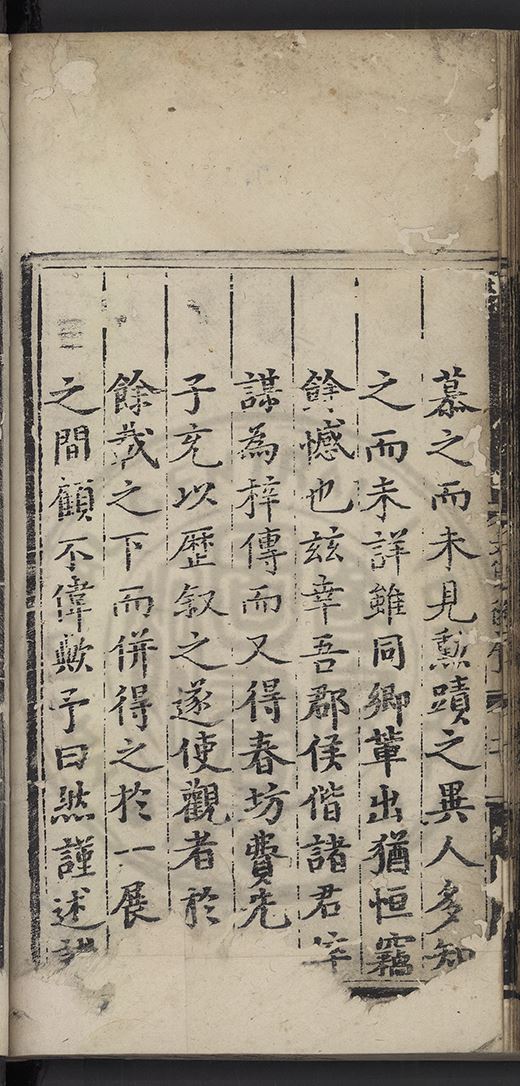 慕之而未見勲蹟之異人多知
之而未詳雖同鄉軰出猶恒竊
餘憾也兹幸吾郡侯偕諸君宰
謀為梓傳而又得春坊費先
子充以歷叙之遂使觀者於
餘䒹之下而併得之於一展
之間顧不偉歟予曰然謹述